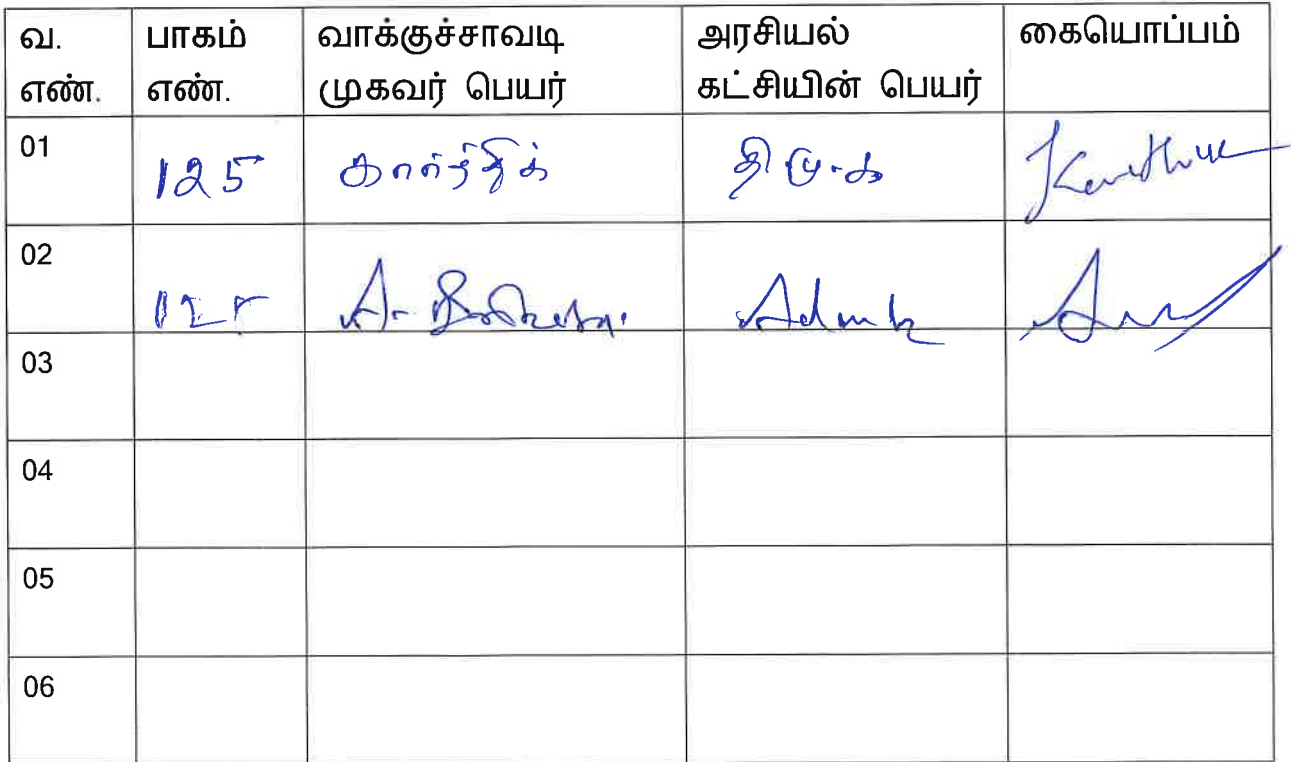 வ. எண். பாகம் எண். வாக்குச்சாவடி முகவர் பெயர் அரசியல் கட்சியின் பெயர் கையொப்பம்
01 125 கார்த்திக் தி மு.க Karthik
02 125 A. Admk
03
04
05
06